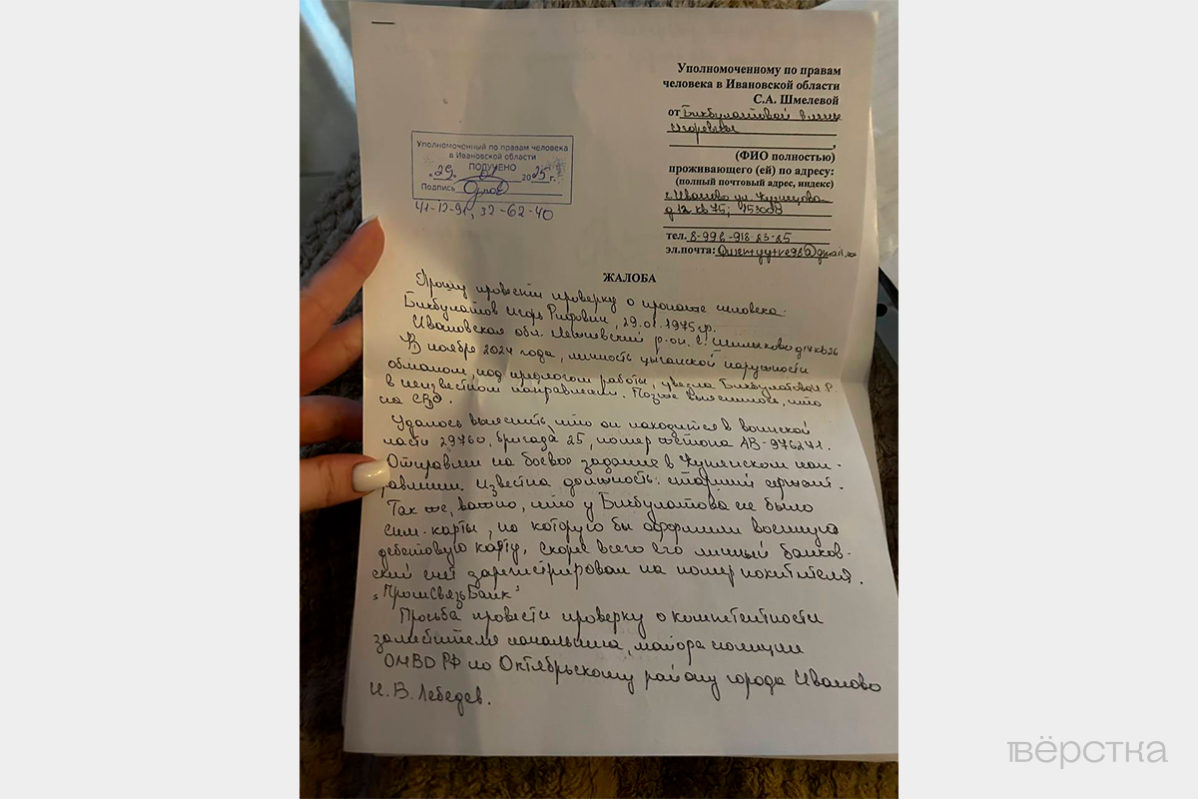 Уполномоченному по правам
человека в Ивановской области
С.А. Шмелевой
от Бикбулатовой
Игоревны
(ФИО полностью)
проживающего (ей) по адресу:
(полный почтовый адрес, индекс)
г. Иваново ул. Кузнецова
д 12 кв 75; 153003
тел. 8-996-918-23-25
эл.почта: @gmail.
Уполномоченный по правам человека
в Ивановской области
ПОЛУЧЕНО
"29" 01 2025 г.
Подпись
41-12-91, 32-62-40
ЖАЛОБА
Прошу провести проверку о пропаже человека:
Бикбулатов Игорь Рифович, 29.01.1975 г.р.
Ивановская обл. Лежневский р-он. с. Шилыково д 14 кв 26
В ноябре 2024 года, личность цыганской наружности
обманом, под предлогом работы, увезла Бикбулатова И.Р.
в неизвестном направлении. Позже выяснилось, что
на СВО.
Удалось выяснить, что он находится в воинской
части 29760, бригада 25, номер жетона АВ-976271.
Отправили на боевое задание в Купянском нап-
равлении. Известна должность: старший сержант.
Так же, важно, что у Бикбулатова не было
сим-карты, на которую бы оформили военную
дебетовую карту, скорее всего его личный банков-
ский счет зарегистрирован на номер похитителя.
"ПромСвязьБанк"
Просьба провести проверку о компетентности
заместителя начальника, майора полиции
ОМВД РФ по Октябрьскому району города Иваново
И.В. Лебедев.
вёрстка